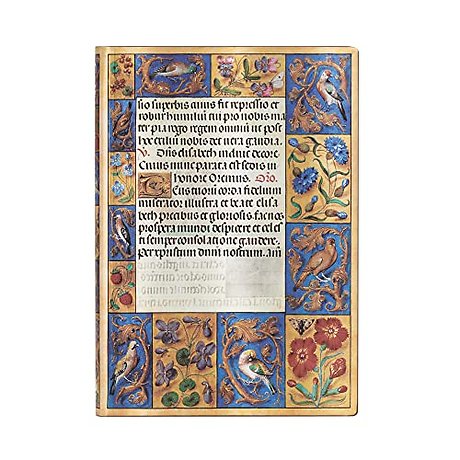 sio superbis anus fit repressio et
robur humilium pro nobis ma
ter pia rogo regem omnium ut post
hec exilium nobis det vera gaudia.
V. Dns elisabeth induit decore
Cuius nunc parata est sedis in
honore Oremus. Oro.
tuorum corda fidelium
miserator illustra et beate elisa
beth precibus et gloriosis fac nos
prospera mundi despicere et celes
ti semper consolatione gaudere.
per xpistum dnm nostrum. am